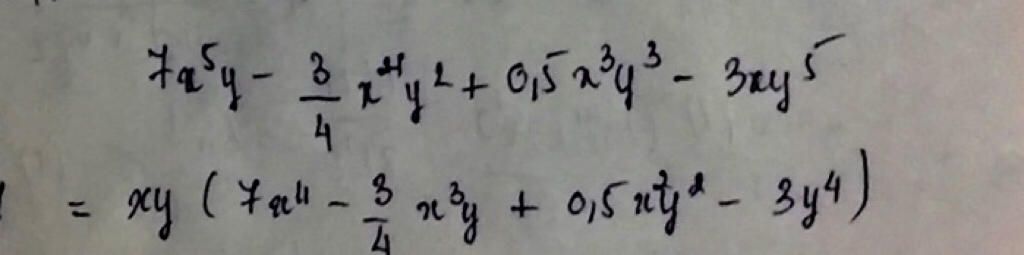 7x⁵y - 3/4 x⁴y² + 0,5x³y³ - 3xy⁵
= xy (7x⁴ - 3/4 x³y + 0,5x²y² - 3y⁴)